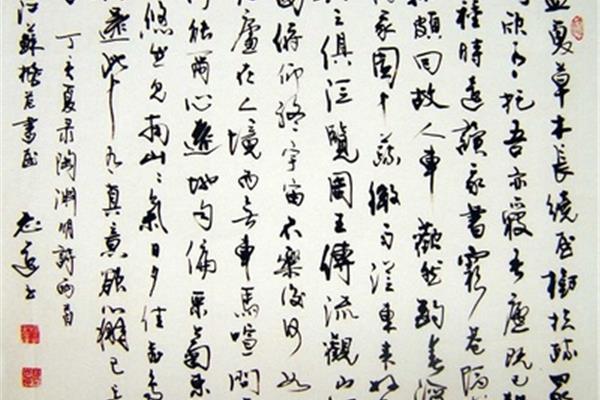 孟夏草木長繞屋樹扶疏眾
欣有托吾亦愛吾廬既已耕
種時還讀我書窮巷隔
頗回故人車歡然酌春酒
我園中蔬微雨從東來好
之俱泛覽周王傳流觀山
圖俯仰終宇宙不樂復何如
廬在人境而無車馬喧問
何能爾心遠地自偏采菊東
悠然見南山山氣日夕佳飛鳥
還此中有真意欲辨已忘
丁亥夏录陶渊明詩兩首
江蘇書